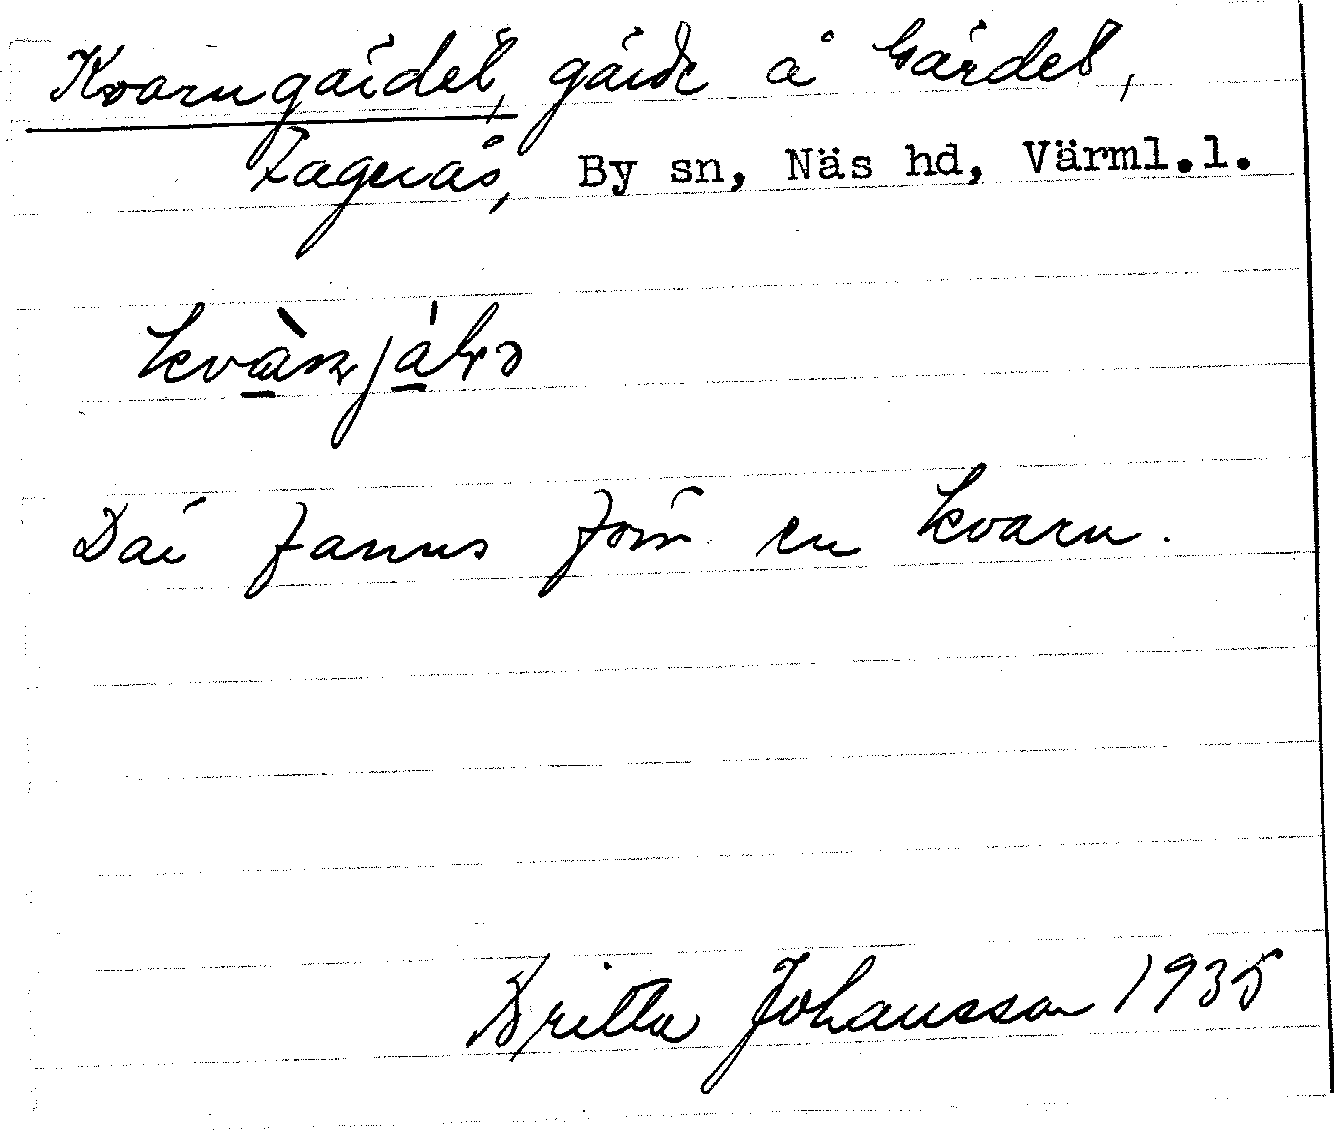 Kvarngärdet, gärde å Gärdet,
Fagerås, By sn, Näs hd, Värml.l.
Där fanns förr en kvarn.
Britta Johansson 1935